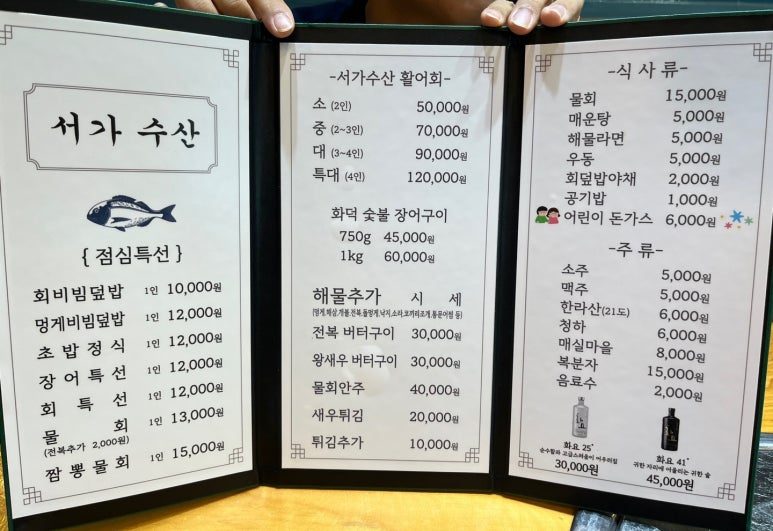 서가 수산
{ 점심특선 }
회비빔덮밥 1인 10,000원
멍게비빔덮밥 1인 12,000원
초밥정식 1인 12,000원
장어특선 1인 12,000원
회특선 1인 12,000원
물회 1인 13,000원
(전복추가 2,000원)
짬뽕물회 1인 15,000원
-서가수산 활어회-
소 (2인) 50,000원
중 (2~3인) 70,000원
대 (3~4인) 90,000원
특대 (4인) 120,000원
화덕 숯불 장어구이
750g 45,000원
1kg 60,000원
해물추가 시 세
(멍게,해삼,개불,전복,돌멍게,낙지,소라,코끼리조개,통문어찜 등)
전복 버터구이 30,000원
왕새우 버터구이 30,000원
물회안주 40,000원
새우튀김 20,000원
튀김추가 10,000원
-식 사 류-
물회 15,000원
매운탕 5,000원
해물라면 5,000원
우동 5,000원
회덮밥야채 2,000원
공기밥 1,000원
어린이 돈가스 6,000원
-주 류-
소주 5,000원
맥주 5,000원
한라산(21도) 6,000원
청하 6,000원
매실마을 8,000원
복분자 15,000원
음료수 2,000원
화요 25°
순수함과 고급스러움이 어우러짐
30,000원
화요 41°
귀한 자리에 어울리는 귀한 술
45,000원